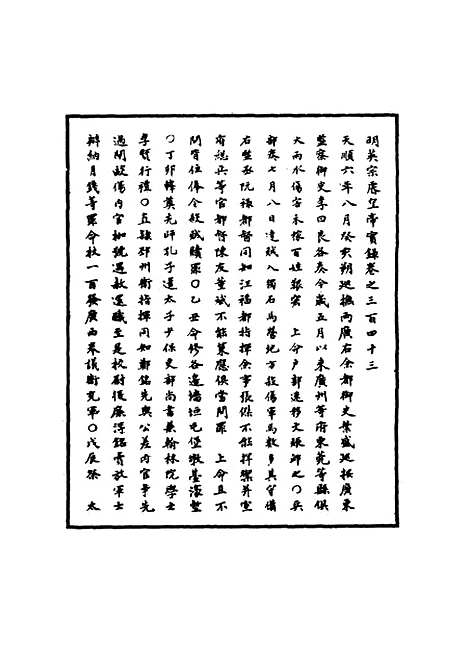 明英宗睿皇帝實錄卷之三百四十三
天順六年八月癸亥朔巡撫兩廣右僉都御史葉盛巡按廣東
監察御史李四良各奏今歲五月以來廣州等府東莞等縣俱
大雨水傷害禾稼百姓艱窘　上命戶部速移文賑卹之〇兵
部奏七月八日達賊入獨石馬營地方殺傷軍馬數多其守備
右監丞阮祿都督同知江福都指揮僉事張傑不能捍禦并宣
府總兵等官都督陳友董斌不能策應俱當問罪　上命且不
問寄住俸令殺賊贖罪〇乙丑命修各邊墻垣屯堡墩臺濠塹
〇丁卯釋奠先師孔子遣太子少保吏部尚書兼翰林院學士
李賢行禮〇直隸邳州衛指揮同知鄭銘先與公差內官爭先
過閘毆傷內官枷號遇赦還職至是校尉復廉得銘賣放軍士
辦納月錢等罪命杖一百發廣西奉議衛充軍〇戊辰祭　太